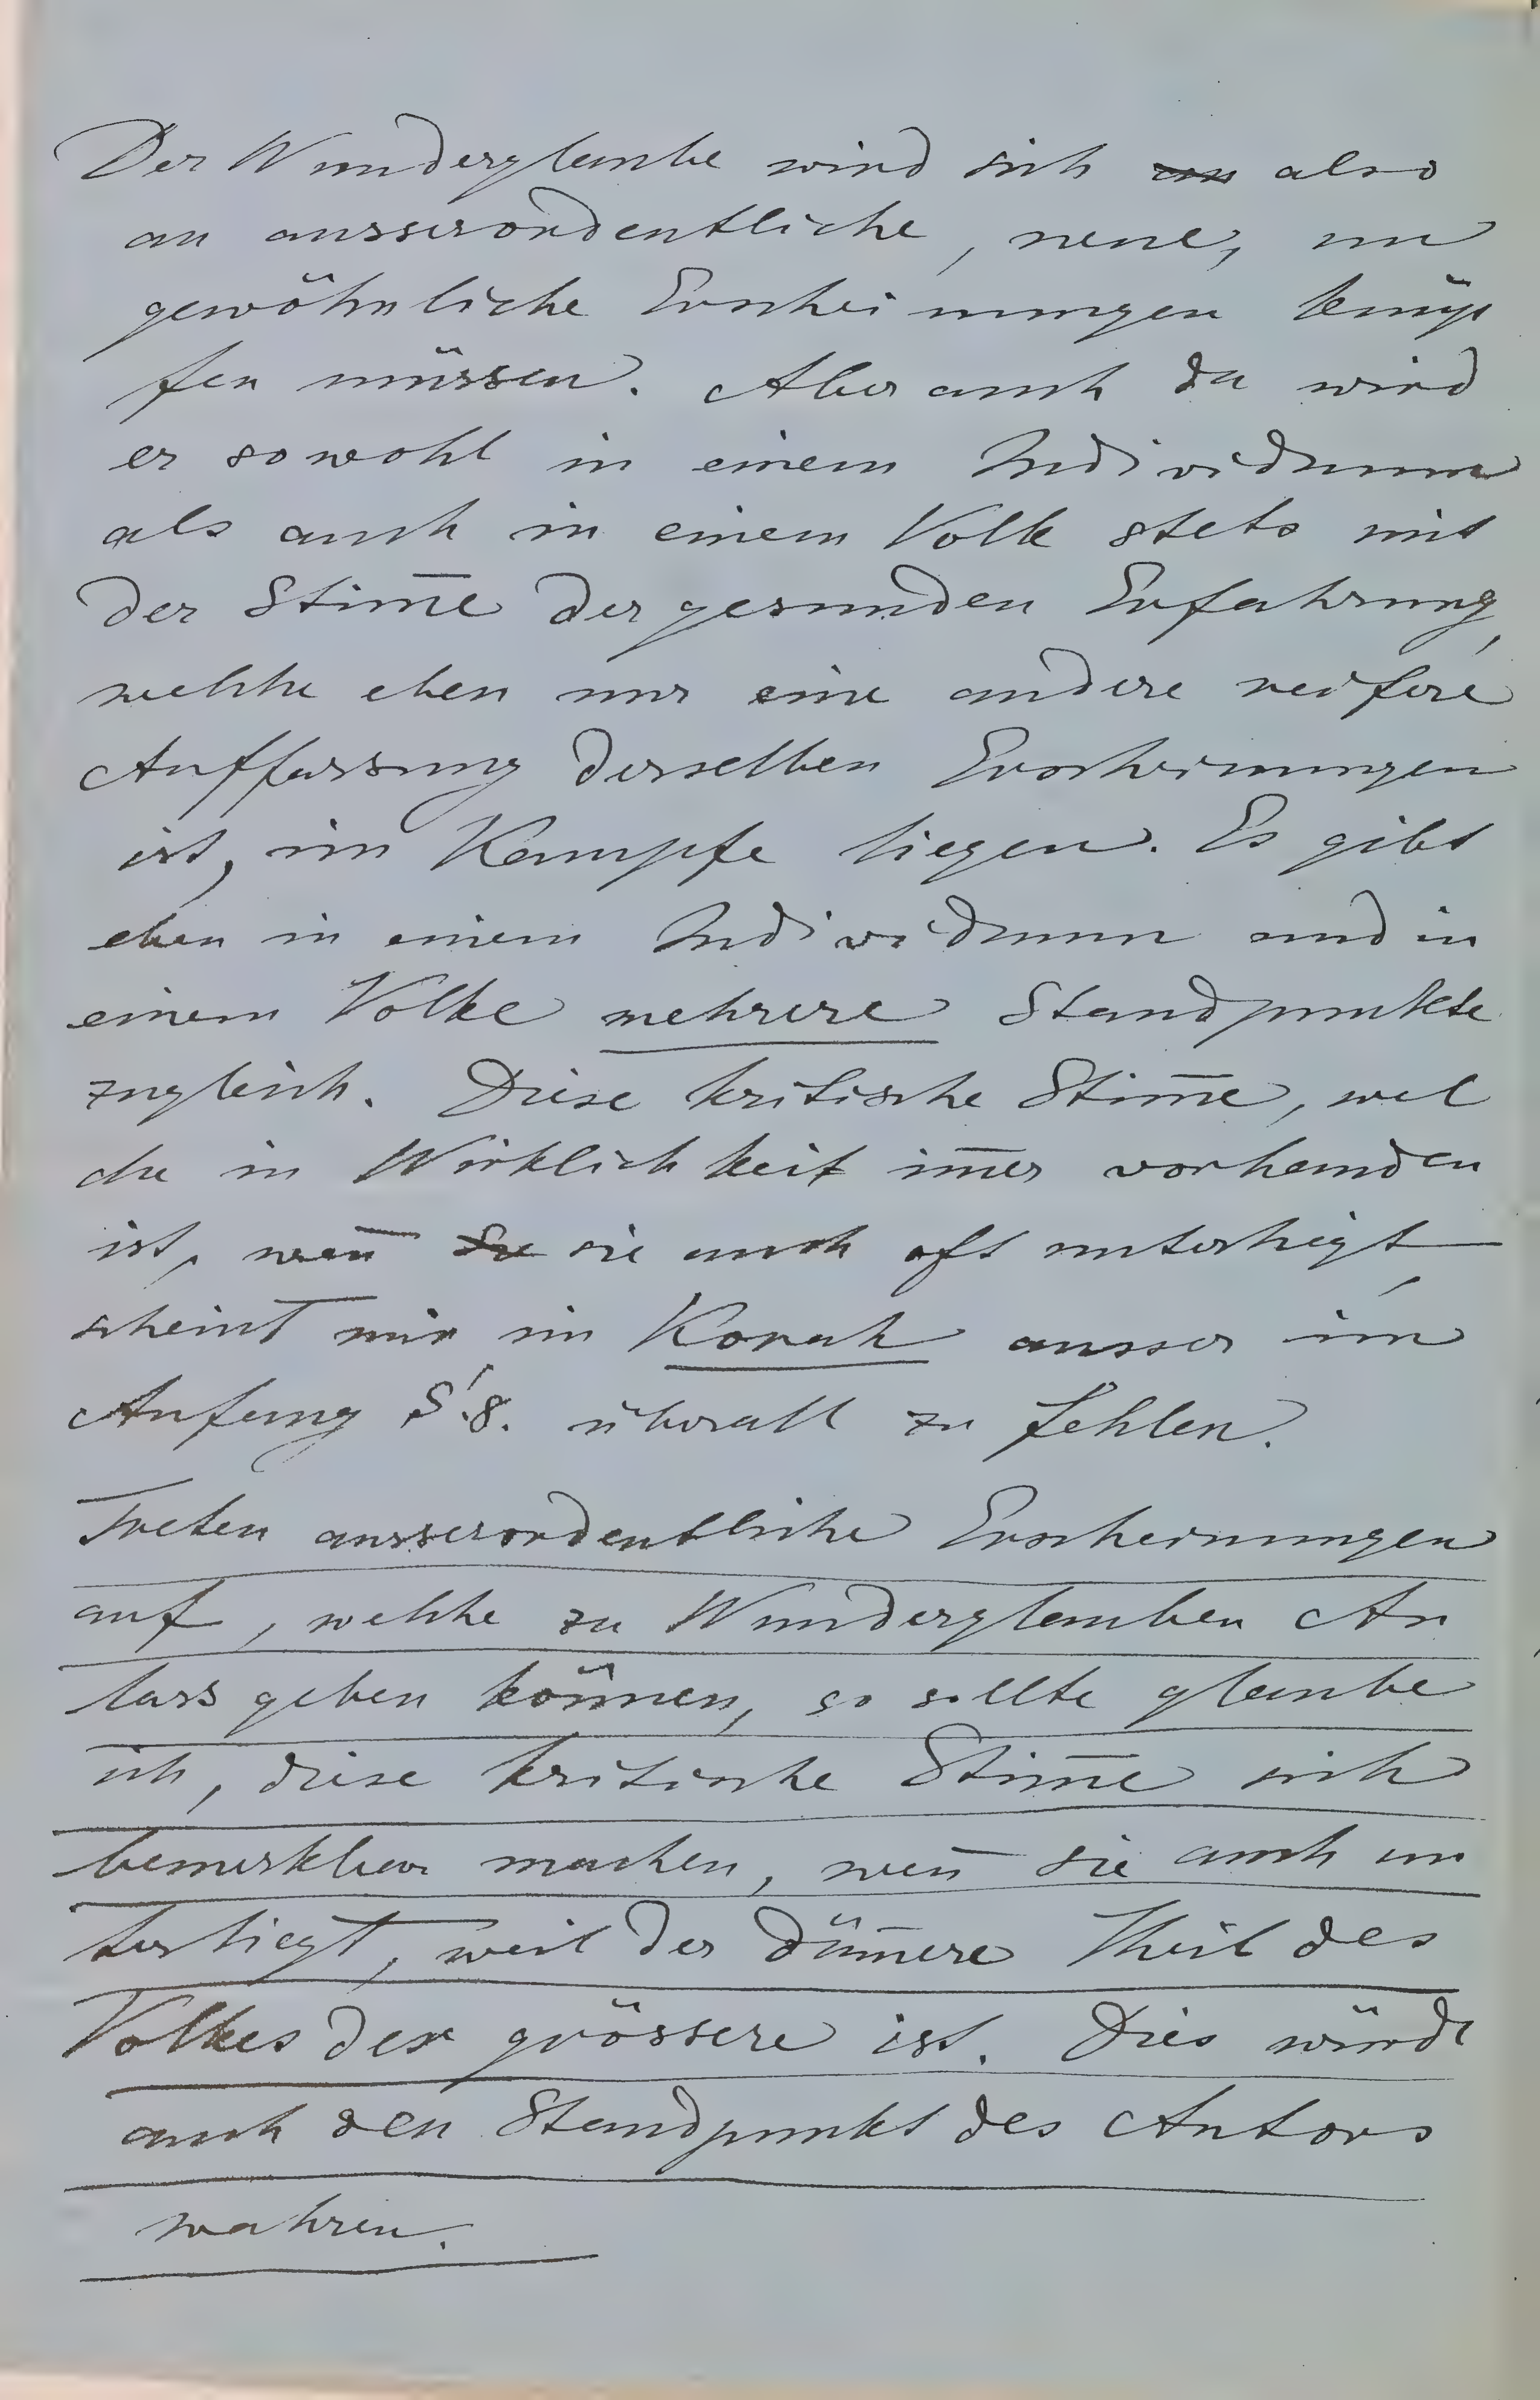 Der Wunderglaube wird sich ~~an~~ also
an ausserordentliche, neue, un
gewöhnliche Erscheinungen knüp
fen müssen. Aber auch da wird
er sowohl in einem Individuum
als auch in einem Volk stets mit
der Stim̅e der gesunden Erfahrung,
welche eben nur eine andere reifere
Auffassung derselben Erscheinungen
ist, im Kampfe liegen. Es gibt
eben in einem Individuum und in
einem Volke mehrere Standpunkte
zugleich. Diese kritische Stim̅e, wel
che in Wirklichkeit im̅er vorhanden
ist, wen̅ sie auch oft unterliegt,
scheint mir im Korah ausser im
Anfang S. 8. überall zu fehlen.
Treten ausserordentliche Erscheinungen
auf, welche zu Wunderglauben An
lass geben können, so sollte glaube
ich, diese kritische Stim̅e sich
bemerkbar machen, wen̅ sie auch un
terliegt, weil der düm̅ere Theil des
Volkes der grössere ist. Dies würde
auch den Standpunkt des Autors
wahren.